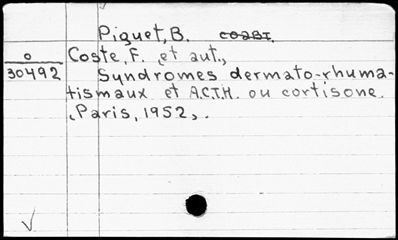 Piguet, B. COABI.
o Coste, F. et aut.,
30492 Syndromes dermato-rhuma-
tismaux et A.C.T.H. ou cortisone.
Paris, 1952,.